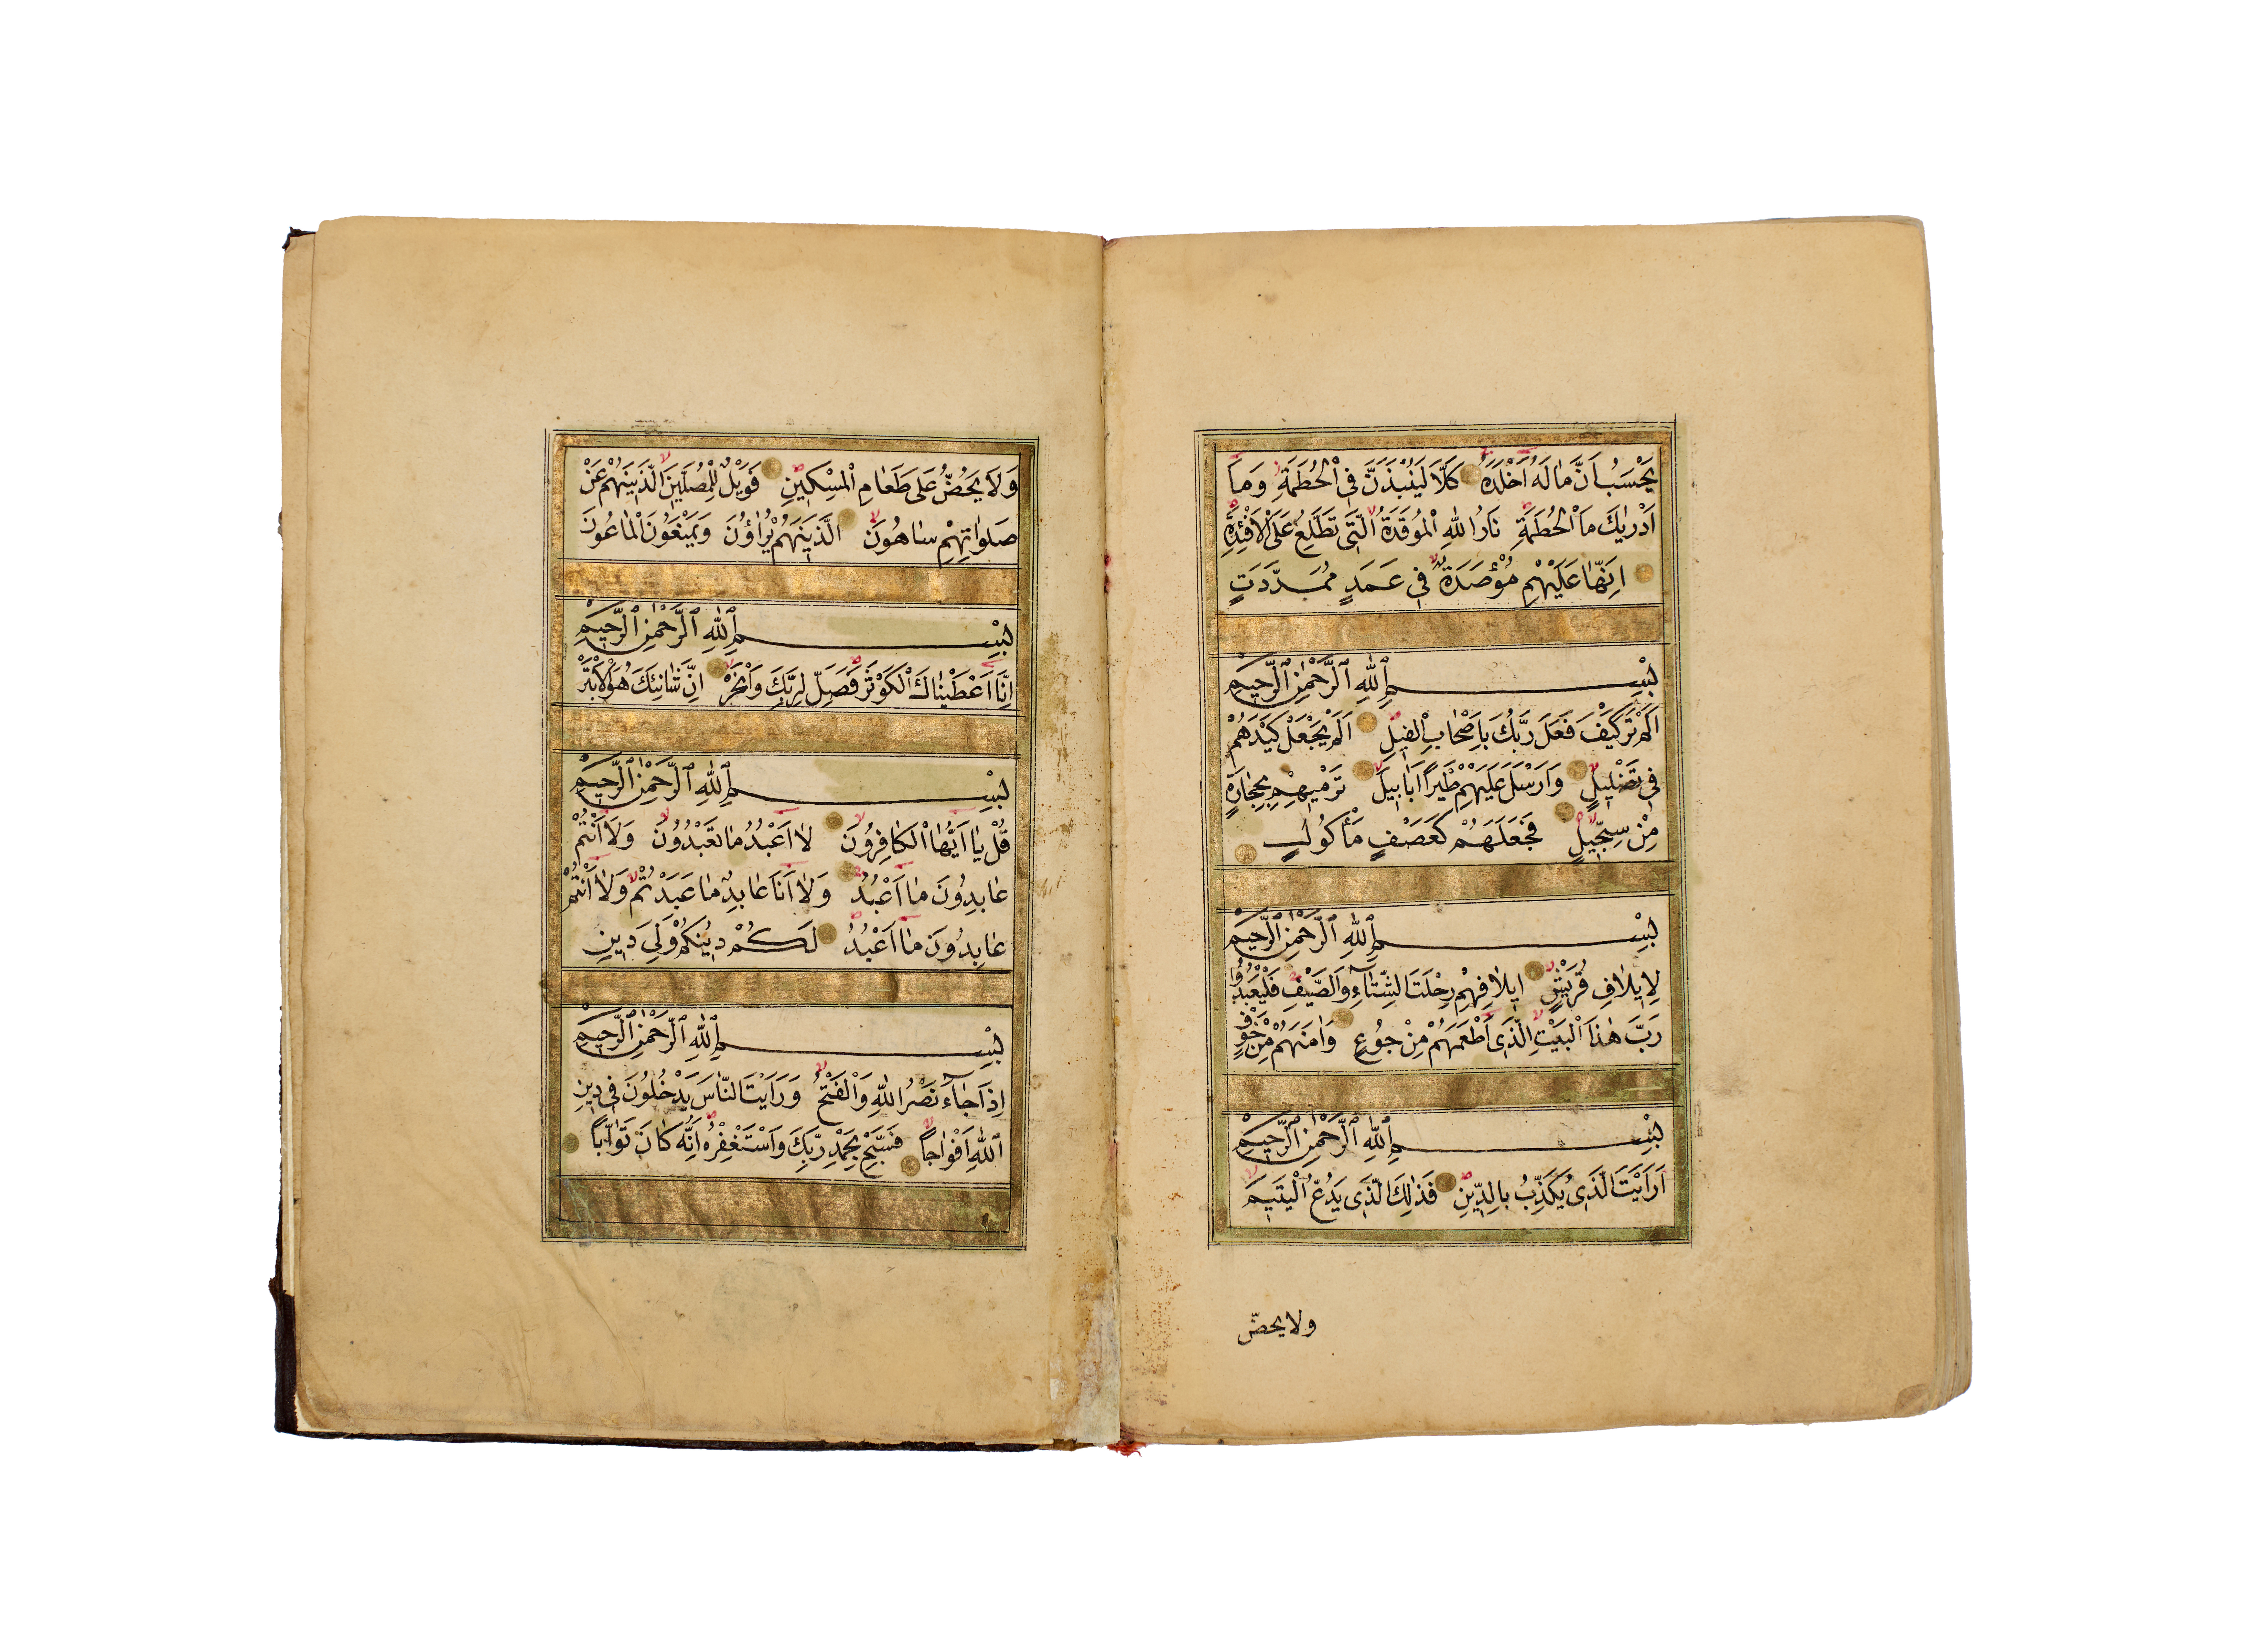 يَحْسَبُ اَنَّ مٰالَهُ اَخْلَدَهُ كَلَّا لَيُنْبَذَنَّ فِى الْحُطَمَةِ وَمَٓا
اَدْرٰيكَ مَا الْحُطَمَةِ نَارُ اللّٰهِ الْمُوقَدَةُ الَّتِى تَطَّلِعُ عَلَى الْاَفْئِدَةِ
اِنَّهٰا عَلَيْهِمْ مُؤْصَدَةٌ فِى عَمَدٍ مُمَدَّدَتٍ
بِسْمِ اللّٰهِ الرَّحْمٰنِ الرَّحِيمِ
اَلَمْ تَرَ كَيْفَ فَعَلَ رَبُّكَ بِاَصْحَابِ الْفِيلِ اَلَمْ يَجْعَلْ كَيْدَهُمْ
فِى تَضْلِيلٍ وَاَرْسَلَ عَلَيْهِمْ طَيْراً اَبَابِيلَ تَرْمِيهِمْ بِحِجٰارَةٍ
مِنْ سِجِّيلٍ فَجَعَلَهُمْ كَعَصْفٍ مَأْكُولٍ
بِسْمِ اللّٰهِ الرَّحْمٰنِ الرَّحِيمِ
لِاِيلَافِ قُرَيْشٍ اِيلَافِهِمْ رِحْلَتَ الشِّتَٓاءِ وَالصَّيْفِ فَلْيَعْبُدُوا
رَبَّ هٰذَا الْبَيْتِ الَّذِى اَطْعَمَهُمْ مِنْ جُوعٍ وَاٰمَنَهُمْ مِنْ خَوْفٍ
بِسْمِ اللّٰهِ الرَّحْمٰنِ الرَّحِيمِ
اَرَاَيْتَ الَّذِى يُكَذِّبُ بِالدِّينِ فَذٰلِكَ الَّذِى يَدُعُّ الْيَتِيمَ
ولا يحضّ
وَلَا يَحُضُّ عَلَى طَعَامِ الْمِسْكِينِ فَوَيْلٌ لِلْمُصَلِّينَ الَّذِينَهُمْ عَنْ
صَلَوٰاتِهِمْ سٰاهُونَ الَّذِينَهُمْ يُرٰاؤُنَ وَيَمْنَعُونَ الْمٰاعُونَ
بِسْمِ اللّٰهِ الرَّحْمٰنِ الرَّحِيمِ
اِنَّا اَعْطَيْنٰاكَ الْكَوْثَرَ فَصَلِّ لِرَبِّكَ وَانْحَرْ اِنَّ شٰانِئَكَ هُوَ الْاَبْتَرْ
بِسْمِ اللّٰهِ الرَّحْمٰنِ الرَّحِيمِ
قُلْ يٰا اَيُّهَا الْكٰافِرُونَ لٰا اَعْبُدُ مٰا تَعْبُدُونَ وَلَا اَنْتُمْ
عٰابِدُونَ مٰا اَعْبُدُ وَلٰا اَنَا عٰابِدٌ مٰا عَبَدْتُمْ وَلٰا اَنْتُمْ
عٰابِدُونَ مٰا اَعْبُدُ لَكُمْ دِينُكُمْ وَلِىَ دِينِ
بِسْمِ اللّٰهِ الرَّحْمٰنِ الرَّحِيمِ
اِذَا جَٓاءَ نَصْرُ اللّٰهِ وَالْفَتْحُ وَرَاَيْتَ النّٰاسَ يَدْخُلُونَ فِى دِينِ
اللّٰهِ اَفْوٰاجاً فَسَبِّحْ بِحَمْدِ رَبِّكَ وَاسْتَغْفِرْهُ اِنَّهُ كَانَ تَوّٰاباً